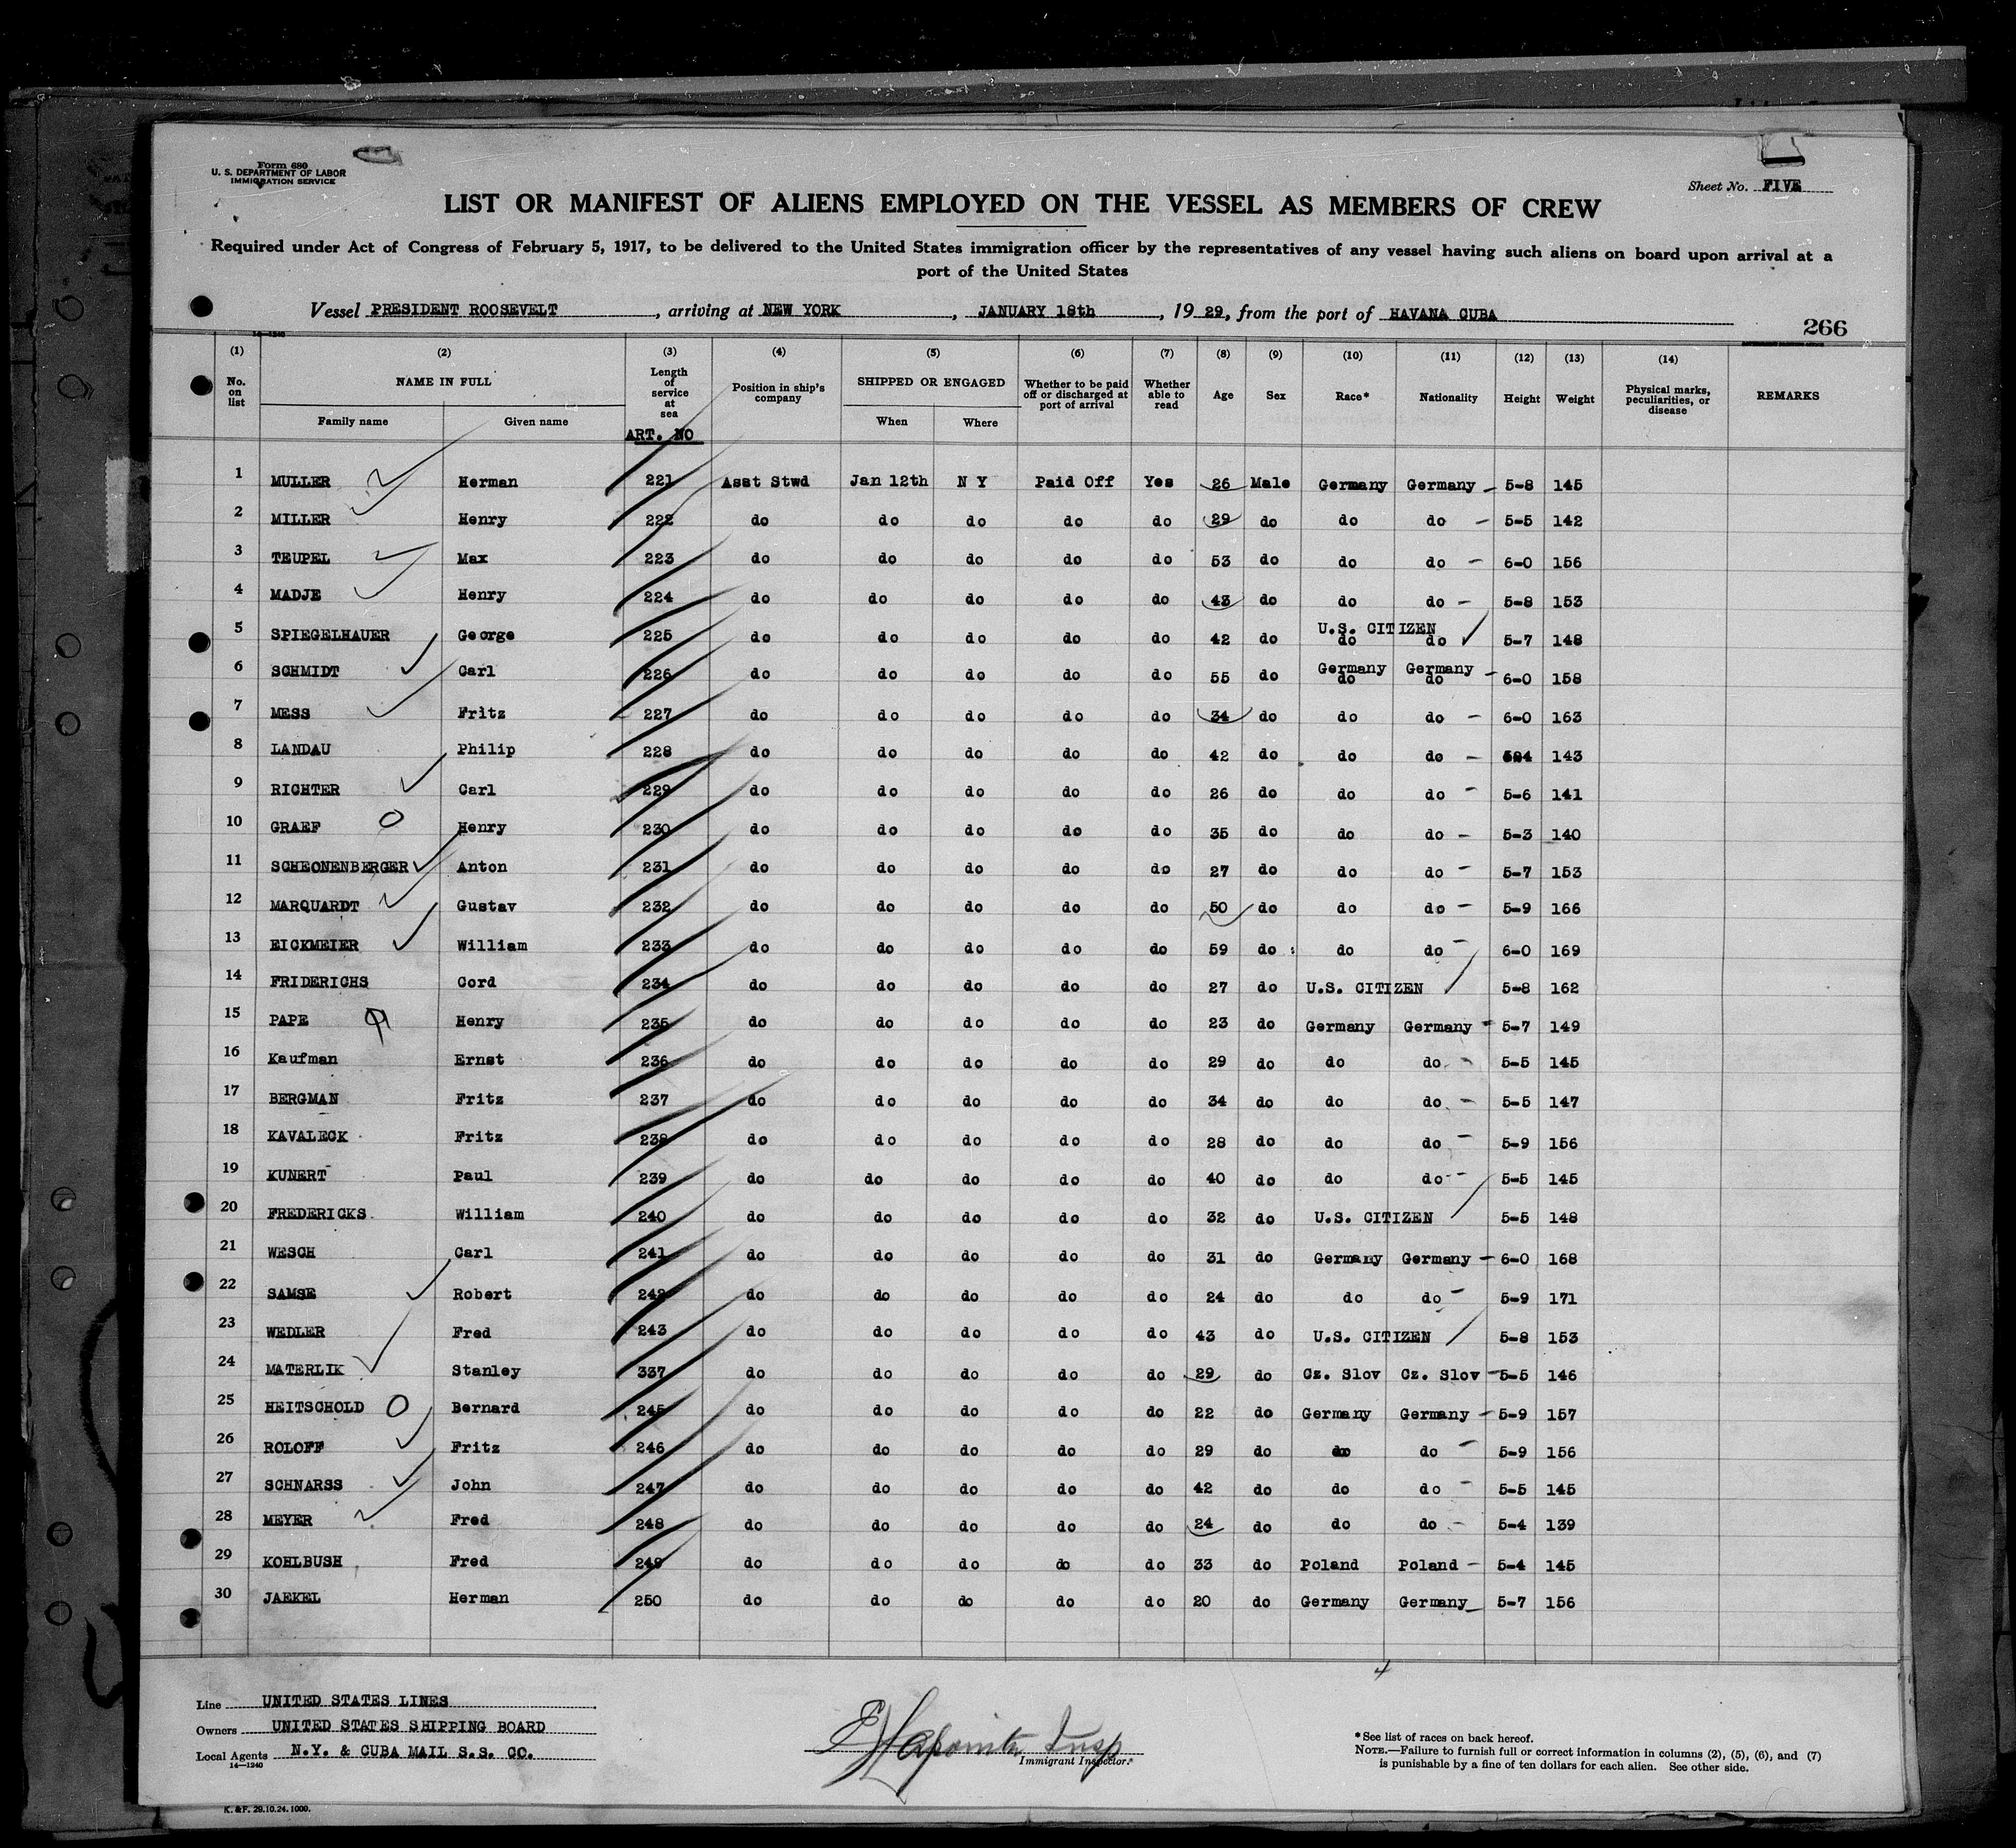 Form 680
U. S. DEPARTMENT OF LABOR
IMMIGRATION SERVICE
Sheet No. FIVE
LIST OR MANIFEST OF ALIENS EMPLOYED ON THE VESSEL AS MEMBERS OF CREW
Required under Act of Congress of February 5, 1917, to be delivered to the United States immigration officer by the representatives of any vessel having such aliens on board upon arrival at a
port of the United States
Vessel PRESIDENT ROOSEVELT, arriving at NEW YORK, JANUARY 18th, 19 29, from the port of HAVANA CUBA
266
14-1240
(1) (2) (3) (4) (5) (6) (7) (8) (9) (10) (11) (12) (13) (14)
No. on list NAME IN FULL Length of service at sea Position in ship's company SHIPPED OR ENGAGED Whether to be paid off or discharged at port of arrival Whether able to read Age Sex Race* Nationality Height Weight Physical marks, peculiarities, or disease REMARKS
Family name Given name When Where
ART. NO
1 MULLER Herman 221 Asst Stwd Jan 12th N Y Paid Off Yes 26 Male Germany Germany - 5-8 145
2 MILLER Henry 222 do do do do do 29 do do do - 5-5 142
3 TEUPEL Max 223 do do do do do 53 do do do - 6-0 156
4 MADJE Henry 224 do do do do do 43 do do do - 5-8 153
5 SPIEGELHAUER George 225 do do do do do 42 do U.S. CITIZEN do do 5-7 148
6 SCHMIDT Carl 226 do do do do do 55 do Germany Germany do do - 6-0 158
7 MESS Fritz 227 do do do do do 34 do do do - 6-0 163
8 LANDAU Philip 228 do do do do do 42 do do do - 5-4 143
9 RICHTER Carl 229 do do do do do 26 do do do - 5-6 141
10 GRAEF Henry 230 do do do do do 35 do do do - 5-3 140
11 SCHEONENBERGER Anton 231 do do do do do 27 do do do - 5-7 153
12 MARQUARDT Gustav 232 do do do do do 50 do do do - 5-9 166
13 EICKMEIER William 233 do do do do do 59 do do do - 6-0 169
14 FRIDERICHS Cord 234 do do do do do 27 do U.S. CITIZEN 5-8 162
15 PAPE Henry 235 do do do do do 23 do Germany Germany - 5-7 149
16 Kaufman Ernst 236 do do do do do 29 do do do - 5-5 145
17 BERGMAN Fritz 237 do do do do do 34 do do do - 5-5 147
18 KAVALECK Fritz 238 do do do do do 28 do do do - 5-9 156
19 KUNERT Paul 239 do do do do do 40 do do do - 5-5 145
20 FREDERICKS William 240 do do do do do 32 do U.S. CITIZEN 5-5 148
21 WESCH Carl 241 do do do do do 31 do Germany Germany - 6-0 168
22 SAMSE Robert 242 do do do do do 24 do do do - 5-9 171
23 WEDLER Fred 243 do do do do do 43 do U.S. CITIZEN 5-8 153
24 MATERLIK Stanley 337 do do do do do 29 do Cz. Slov Cz. Slov - 5-5 146
25 HEITSCHOLD Bernard 245 do do do do do 22 do Germany Germany - 5-9 157
26 ROLOFF Fritz 246 do do do do do 29 do do do - 5-9 156
27 SCHNARSS John 247 do do do do do 42 do do do - 5-5 145
28 MEYER Fred 248 do do do do do 24 do do do - 5-4 139
29 KOHLBUSH Fred 249 do do do do do 33 do Poland Poland - 5-4 145
30 JAEKEL Herman 250 do do do do do 20 do Germany Germany - 5-7 156
4
Line UNITED STATES LINES
Owners UNITED STATES SHIPPING BOARD
Local Agents N.Y. & CUBA MAIL S.S. CO.
14-1240
Insp
Immigrant Inspector.
*See list of races on back hereof.
NOTE.—Failure to furnish full or correct information in columns (2), (5), (6), and (7)
is punishable by a fine of ten dollars for each alien. See other side.
K. & F. 29.10.24.1000.